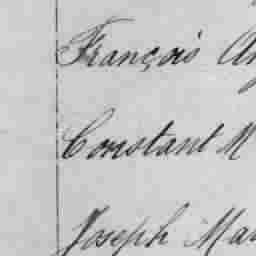 François
Constant M
Joseph Mar